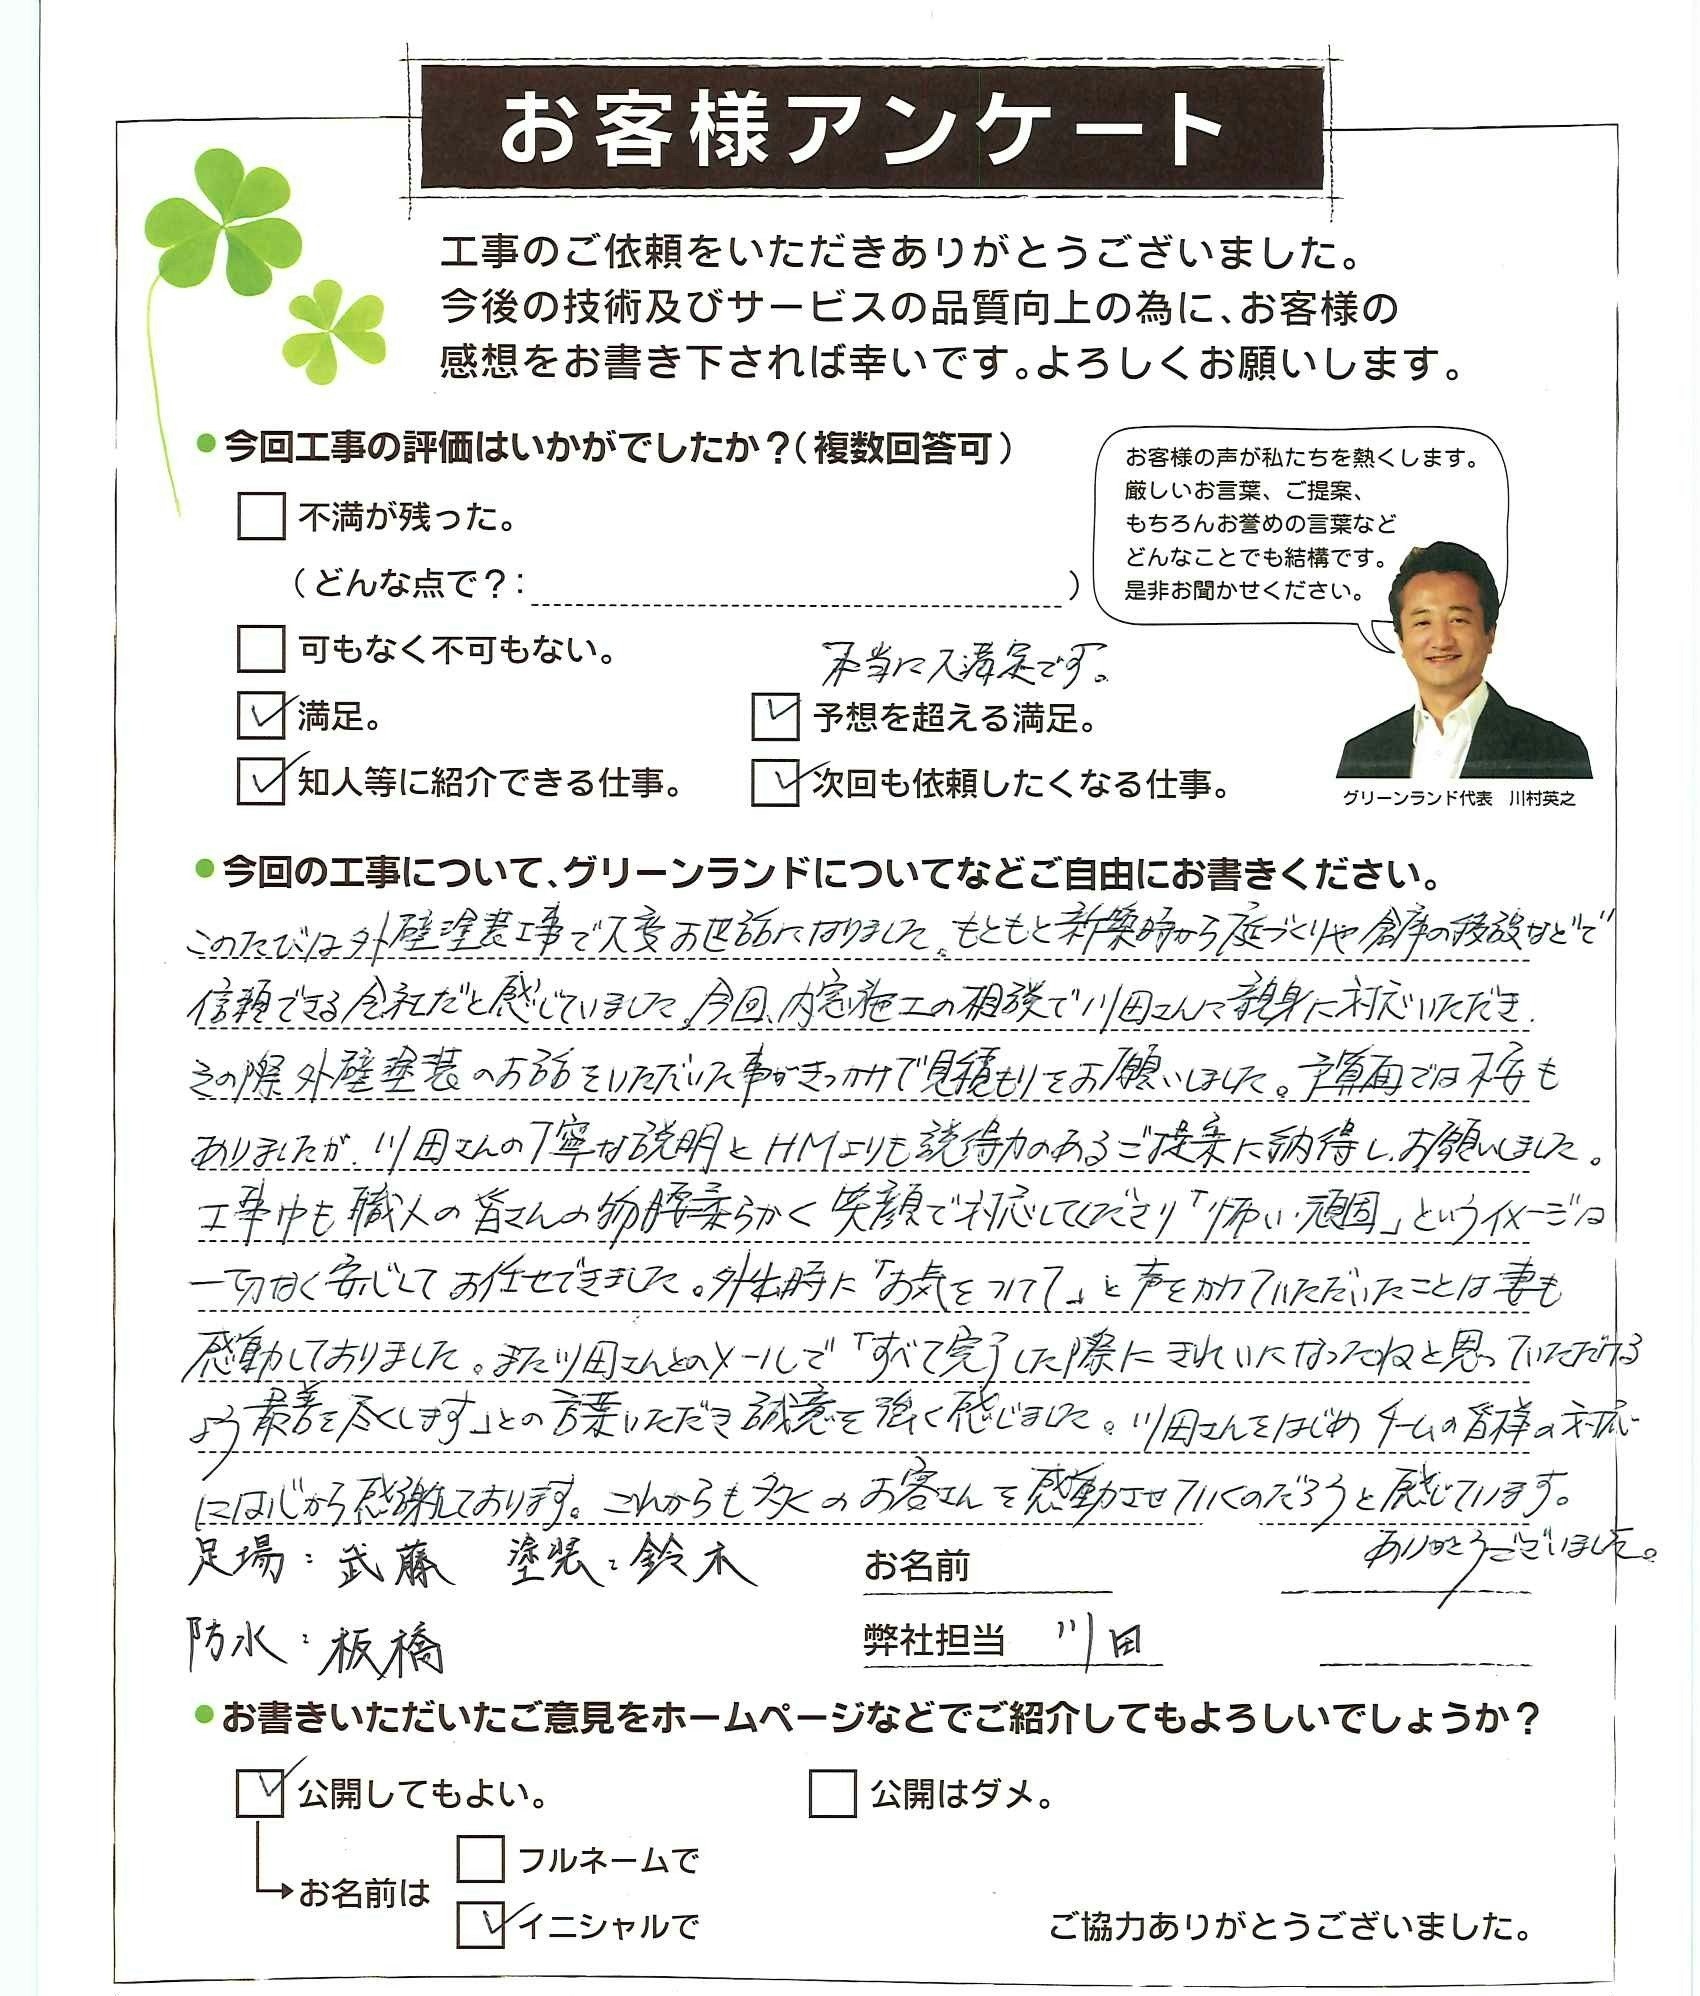 お客様アンケート
工事のご依頼をいただきありがとうございました。
今後の技術及びサービスの品質向上の為に、お客様の
感想をお書き下されば幸いです。よろしくお願いします。
●今回工事の評価はいかがでしたか？（複数回答可）
お客様の声が私たちを熱くします。
厳しいお言葉、ご提案、
もちろんお誉めの言葉など
どんなことでも結構です。
是非お聞かせください。
グリーンランド代表 川村英之
不満が残った。
（どんな点で？： ）
可もなく不可もない。
本当に大満足です。
満足。 予想を超える満足。
知人等に紹介できる仕事。 次回も依頼したくなる仕事。
●今回の工事について、グリーンランドについてなどご自由にお書きください。
このたびは外壁塗装工事で大変お世話になりました。もともと新築時から庭づくりや倉庫の移設などで
信頼できる会社だと感じていました。今回、内窓施工の相談で川田さんに親身に対応いただき、
その際外壁塗装のお話をいただいた事がきっかけで見積もりをお願いしました。予算面では不安も
ありましたが、川田さんの丁寧な説明とHMよりも説得力のあるご提案に納得し、お願いしました。
工事中も職人の皆さんの物腰柔らかく笑顔で対応してくださり「怖い・頑固」というイメージは
一切なく安心してお任せできました。外出時に「お気をつけて」と声をかけていただいたことは妻も
感動しておりました。また川田さんとのメールで「すべて完了した際にきれいになったねと思っていただける
よう最善を尽くします」との言葉いただき誠意を強く感じました。川田さんをはじめチームの皆様の対応
には心から感謝しております。これからも多くのお客さんを感動させていくのだろうと感じています。
ありがとうございました。
足場：武藤 塗装：鈴木 お名前
防水：板橋 弊社担当 川田
●お書きいただいたご意見をホームページなどでご紹介してもよろしいでしょうか？
公開してもよい。 公開はダメ。
フルネームで
お名前は
イニシャルで
ご協力ありがとうございました。